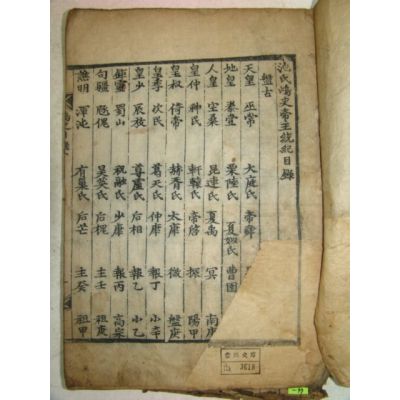 池氏鴻史帝王統紀目錄
盤古
天皇 巫常 大庭氏 帝舜
地皇 泰壹 栗陸氏 夏姒氏 曹圉
人皇 空桑 昆連氏 夏禹 冥 南庚
皇仲 神民 軒轅氏 帝啓 振 陽甲
皇叔 倚帝 赫胥氏 太康 微 盤庚
皇季 次民 葛天氏 仲康 報丁 小辛
皇少 辰放 尊盧氏 后相 報乙 小乙
鉅靈 蜀山 祝融氏 少康 報丙 高宗
句疆 豗傀 吳英氏 后槐 主壬 祖庚
譙明 渾沌 有巢氏 后芒 主癸 祖甲
3618